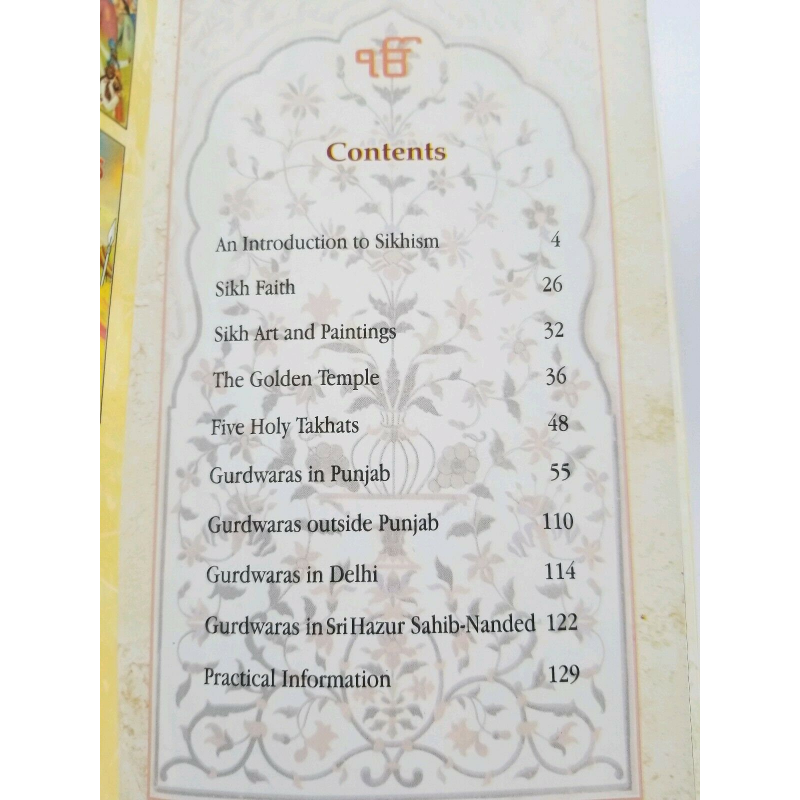 ੴ
Contents
An Introduction to Sikhism 4
Sikh Faith 26
Sikh Art and Paintings 32
The Golden Temple 36
Five Holy Takhats 48
Gurdwaras in Punjab 55
Gurdwaras outside Punjab 110
Gurdwaras in Delhi 114
Gurdwaras in Sri Hazur Sahib-Nanded 122
Practical Information 129